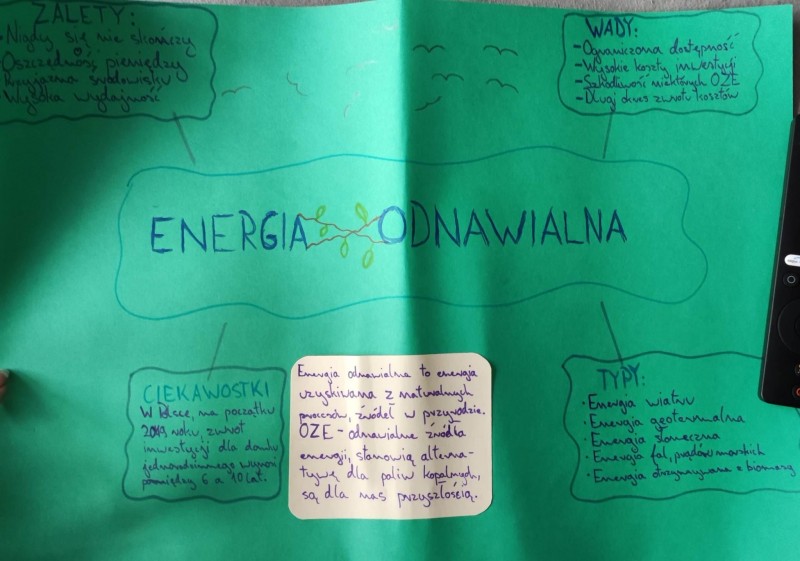 ZALETY:
Nigdy się nie skończy
Oszczędność pieniędzy
Przyjazna środowisku
Wysoka wydajność
WADY:
- Ograniczona dostępność
- Wysokie koszty inwestycji
- Szkodliwość niektórych OZE
- Długi okres zwrotu kosztów
ENERGIA ODNAWIALNA
CIEKAWOSTKI
W Polsce, na początku
2019 roku zwrot
inwestycji dla domku
jednorodzinnego wynosi
pomiędzy 6 a 10 lat.
Energia odnawialna to energia
uzyskiwana z naturalnych
procesów, źródeł w przyrodzie.
OZE - odnawialne źródła
energii, stanowią alterna-
tywę dla paliw kopalnych,
są dla nas przyszłością.
TYPY:
· Energia wiatru
· Energia geotermalna
· Energia słoneczna
· Energia fal, prądów morskich
· Energia otrzymywana z biomasy